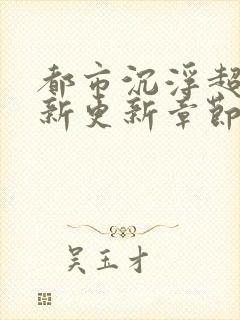 都市沉浮超
新更新章节
吴玉才